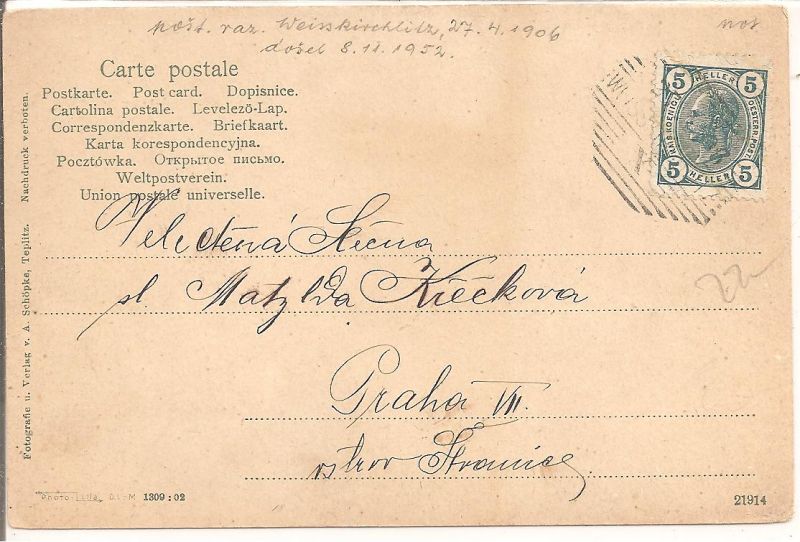 pošt. raz. Weisskirchlitz, 27.4.1906
došel 8.11.1952.
not
Carte postale
Postkarte. Post card. Dopisnice.
Cartolina postale. Levelező-Lap.
Correspondenzkarte. Briefkaart.
Karta korespondencyjna.
Pocztówka. Открытое письмо.
Weltpostverein.
Union postale universelle.
5 HELLER 5
KAIS. KOENIGL. OESTERR. POST.
5 HELLER 5
Velectěná Slečna
sl. Matylda Křečková
22
Praha VII.
ostrov Štvanice
Fotografie u. Verlag v. A. Schöpke, Teplitz. Nachdruck verboten.
1309:02
21914